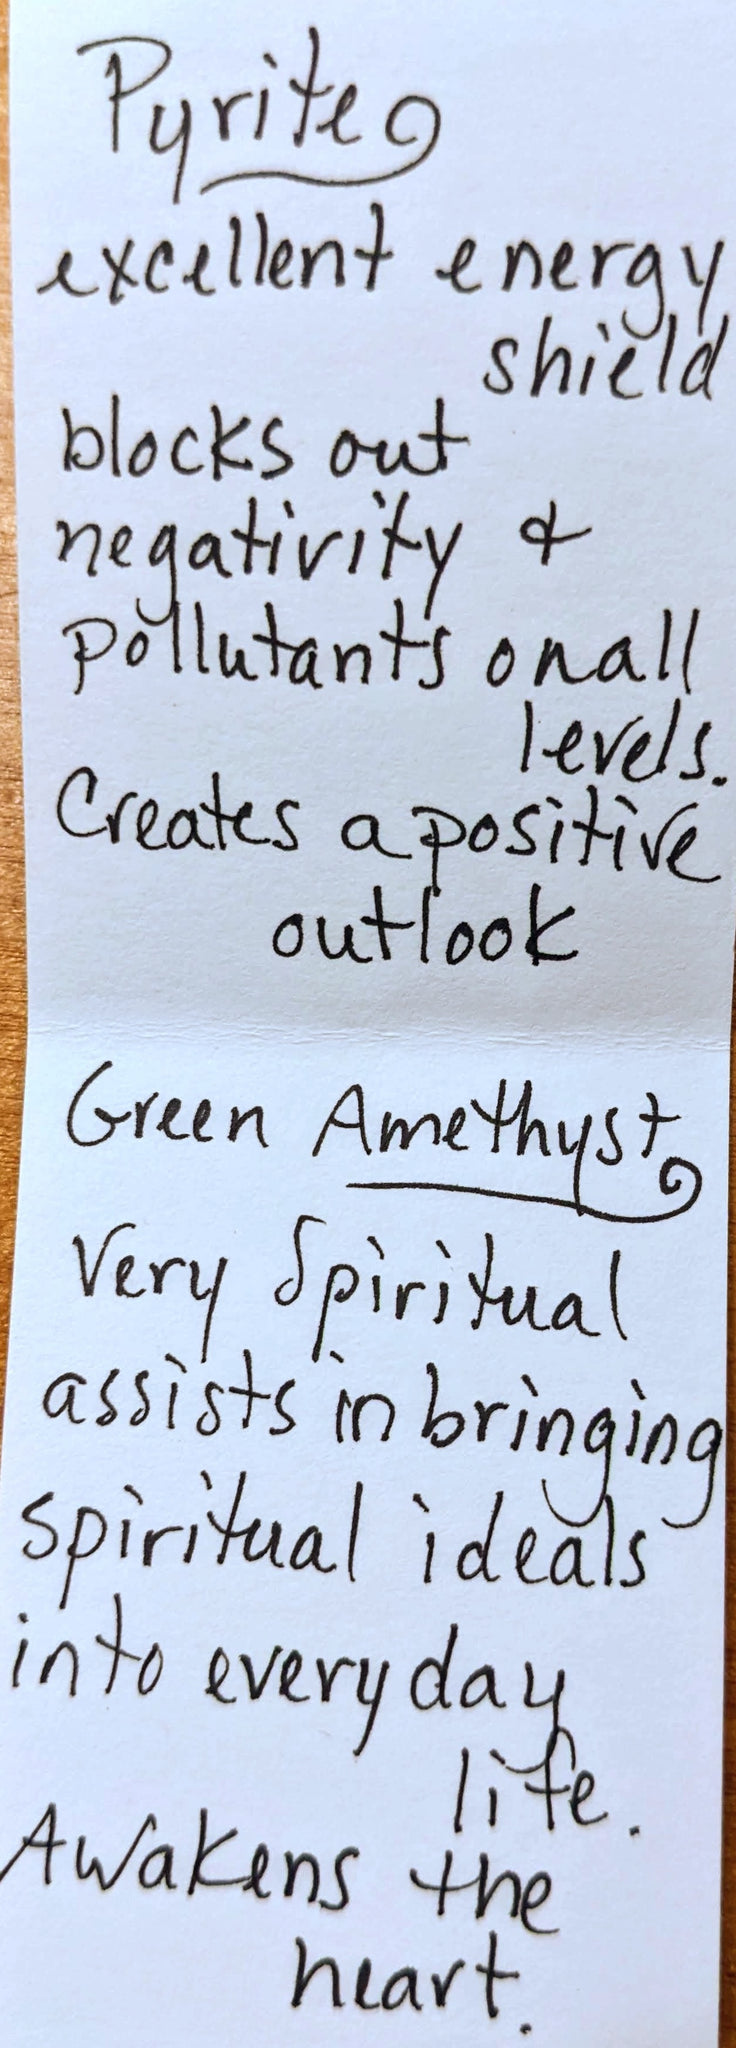 Pyrite
excellent energy
shield
blocks out
negativity &
pollutants on all
levels.
Creates a positive
outlook
Green Amethyst
Very Spiritual
assists in bringing
spiritual ideals
into everyday
life.
Awakens the
heart.